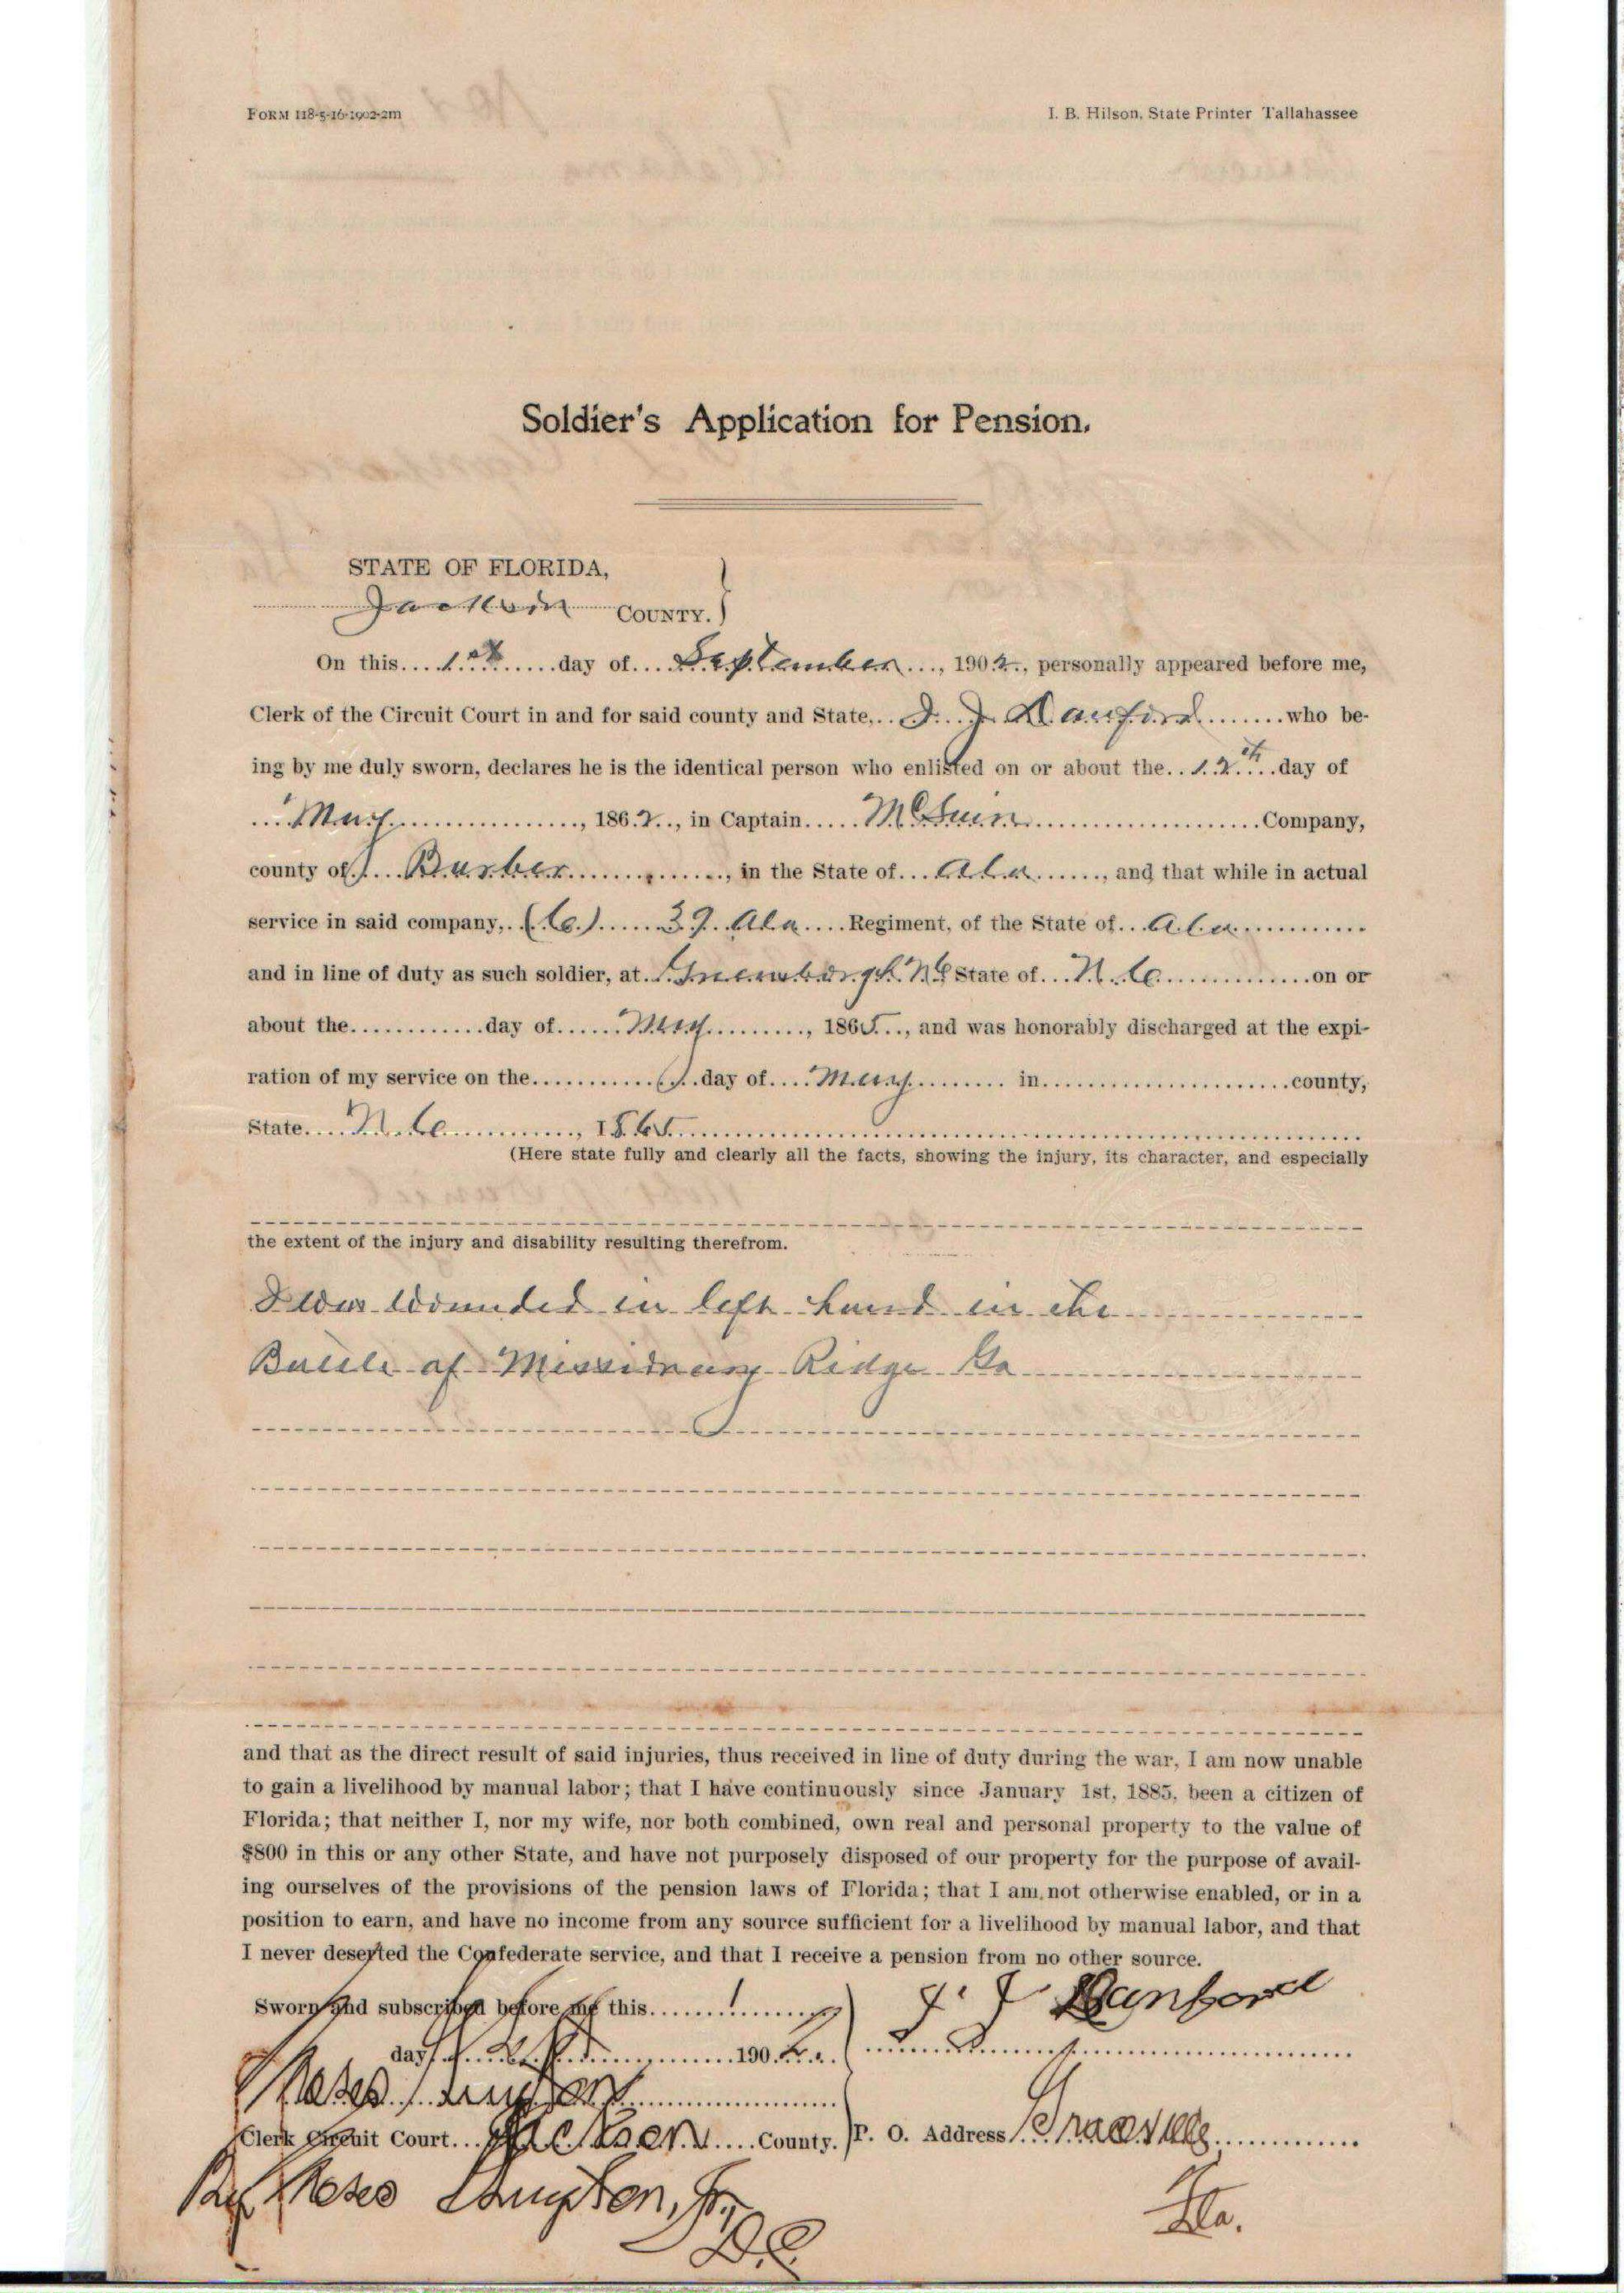 FORM 118-5-16-1902-2m
I. B. Hilson, State Printer Tallahassee
Soldier's Application for Pension.
STATE OF FLORIDA,
Jackson COUNTY.
On this 1st day of September, 1902, personally appeared before me,
Clerk of the Circuit Court in and for said county and State, J. J. Danford who be-
ing by me duly sworn, declares he is the identical person who enlisted on or about the 12th day of
May, 1862, in Captain Company,
county of Barber, in the State of Ala, and that while in actual
service in said company, (C) 39 Ala Regiment, of the State of Ala
and in line of duty as such soldier, at N C State of N. C. on or
about the day of May, 1865, and was honorably discharged at the expi-
ration of my service on the day of May in county,
State N. C, 1865
(Here state fully and clearly all the facts, showing the injury, its character, and especially
the extent of the injury and disability resulting therefrom.
I was wounded in left hand in the
Battle of Missionary Ridge Ga
and that as the direct result of said injuries, thus received in line of duty during the war, I am now unable
to gain a livelihood by manual labor; that I have continuously since January 1st, 1885, been a citizen of
Florida; that neither I, nor my wife, nor both combined, own real and personal property to the value of
$800 in this or any other State, and have not purposely disposed of our property for the purpose of avail-
ing ourselves of the provisions of the pension laws of Florida; that I am not otherwise enabled, or in a
position to earn, and have no income from any source sufficient for a livelihood by manual labor, and that
I never deserted the Confederate service, and that I receive a pension from no other source.
Sworn and subscribed before me this 1
J. J. Danford
day of 1902
Moses Guyton
Clerk Circuit Court Jackson County. P. O. Address Graceville
By Moses Guyton, Jr,
Fla.
D. C.